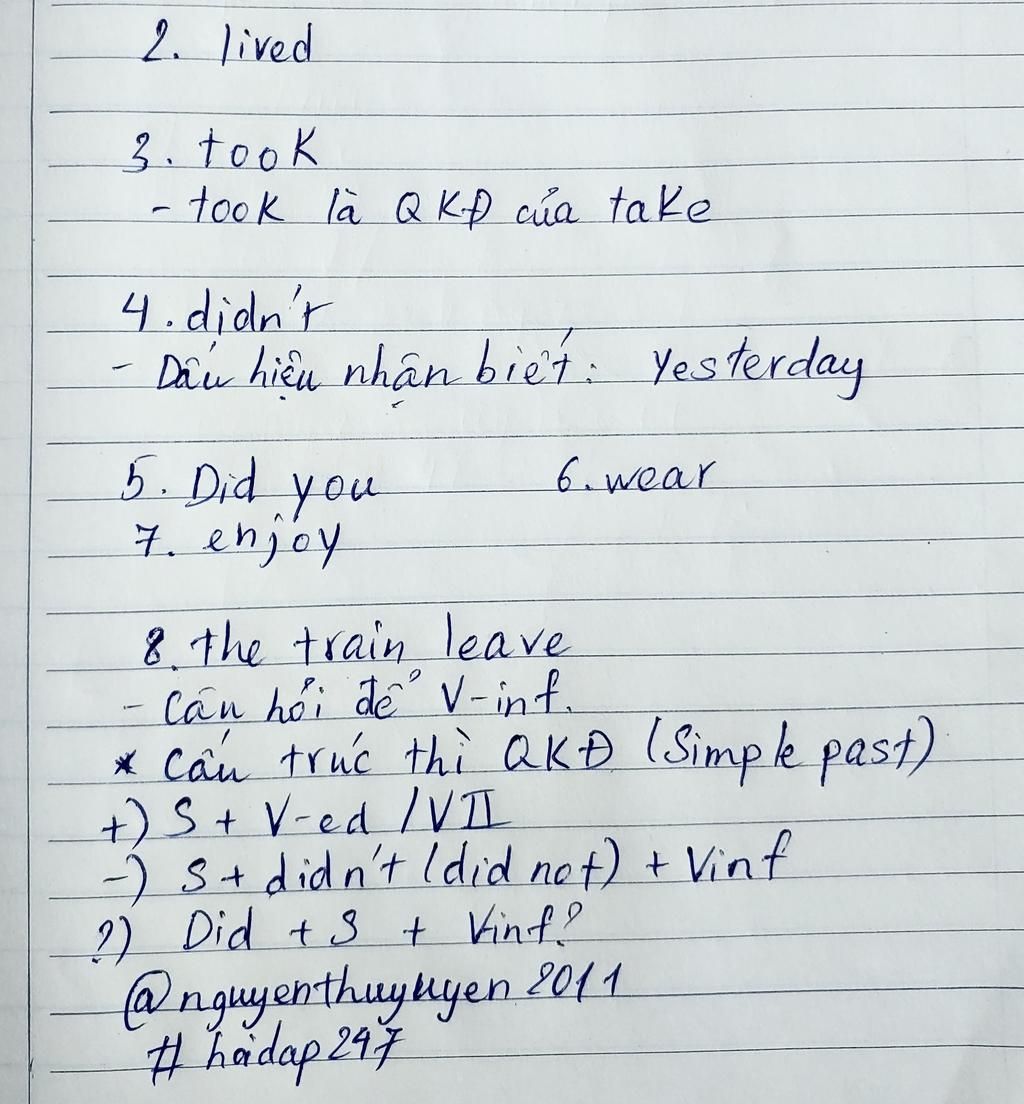 2. lived
3. took
- took là QKĐ của take
4. didn't
- Dấu hiệu nhận biết: Yesterday
5. Did you 6. wear
7. enjoy
8. the train leave
- Câu hỏi để V-inf.
* Cấu trúc thì QKĐ (Simple past)
+) S + V-ed / VII
-) S + didn't (did not) + Vinf
?) Did + S + Vinf?
@nguyenthuyuyen2011
# hoidap247